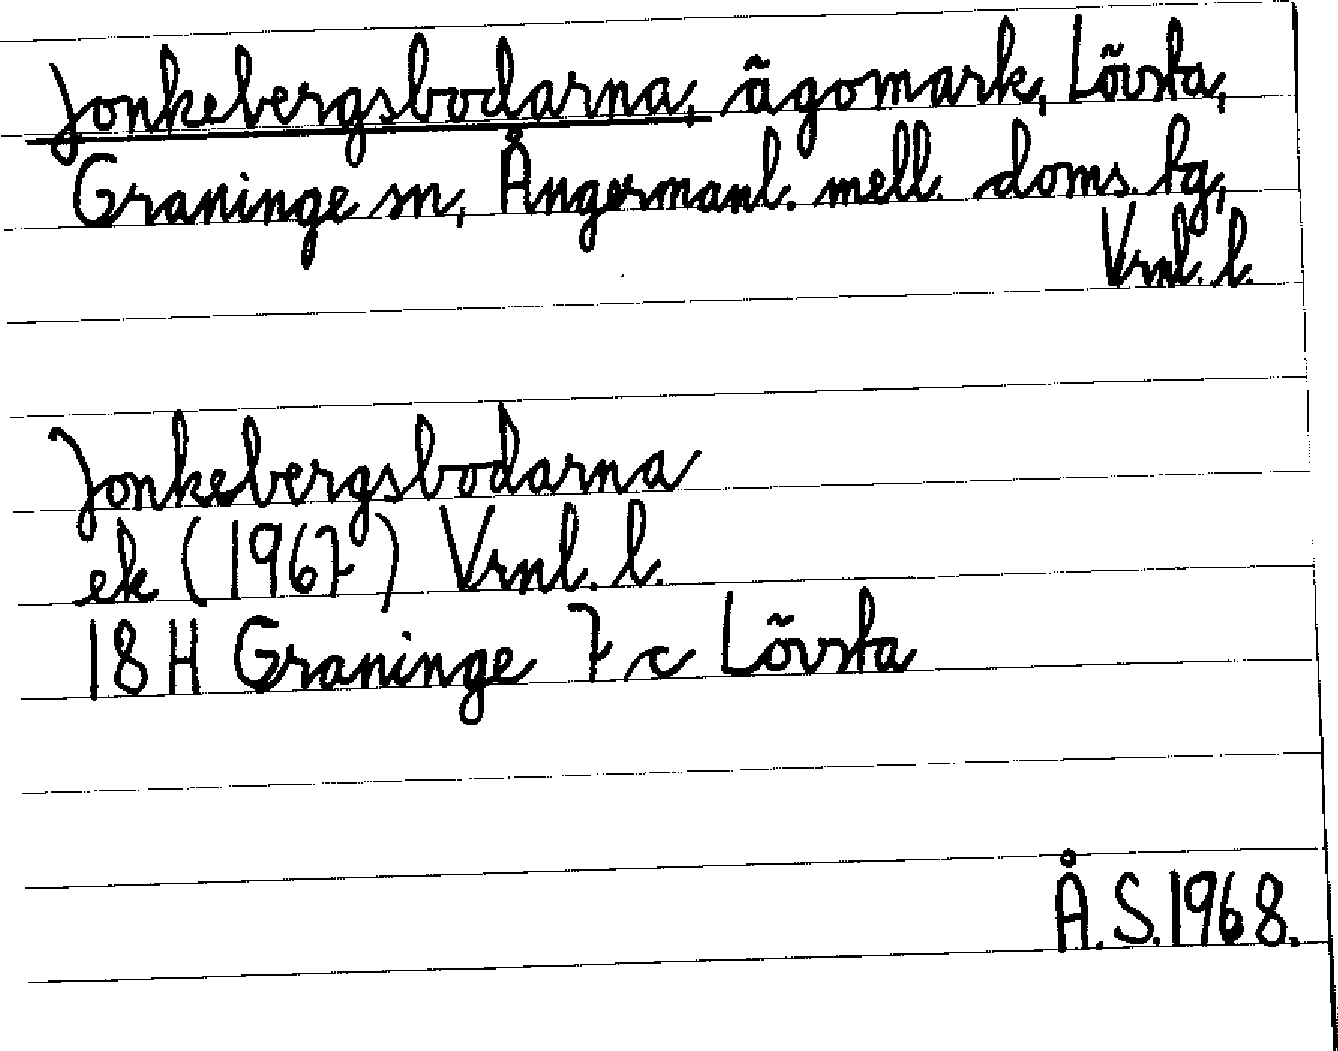 Jonkebergsbodarna, ägomark, Lövsta,
Graninge sn, Ångermanl. mell. doms. fg,
Vrnl. l.
Jonkebergsbodarna
ek (1967) Vrnl. l.
18 H Graninge 7 c Lövsta
Å.S. 1968.